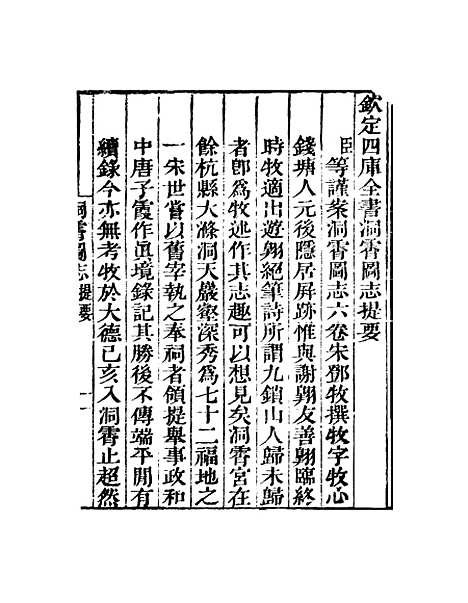 欽定四庫全書洞霄圖志提要
臣等謹案洞霄圖志六卷宋鄧牧撰牧字牧心
錢塘人元後隱居屏跡惟與謝翺友善翺臨終
時牧適出遊翺絕筆詩所謂九鎖山人歸未歸
者卽爲牧述作其志趣可以想見矣洞霄宮在
餘杭縣大滌洞天巖壑深秀爲七十二福地之
一宋世嘗以舊宰執之奉祠者領提舉事政和
中唐子霞作眞境錄記其勝後不傳端平閒有
續錄今亦無考牧於大德己亥入洞霄止超然
洞霄圖志提要
一